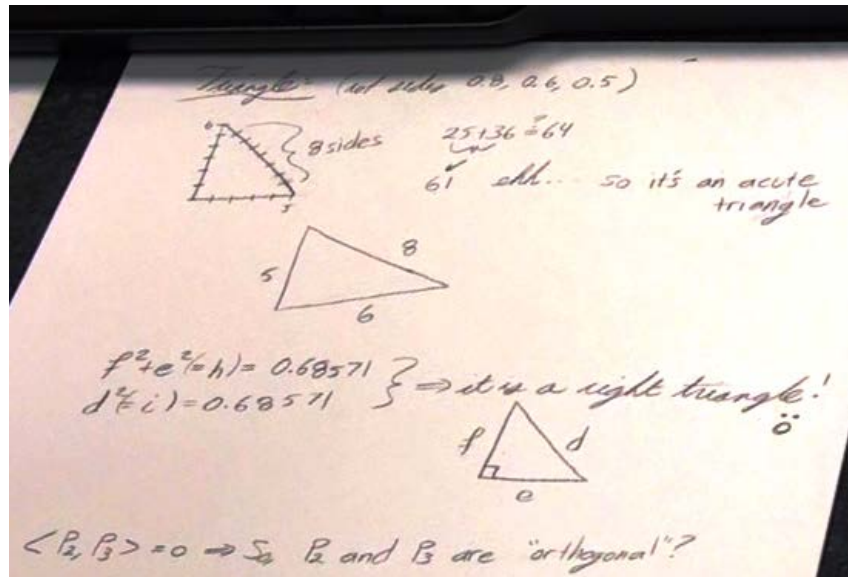 Triangle: (w/ sides 0.8, 0.6, 0.5)
6
8 sides
5
25+36 ≟ 64
61 ehh... so it's an acute
triangle
5
8
6
f²+e²(=h)= 0.68571
d²(=i)=0.68571
} ⇒ it is a right triangle!
f
d
e
<P₂, P₃> = 0 ⇒ So P₂ and P₃ are "orthogonal"?